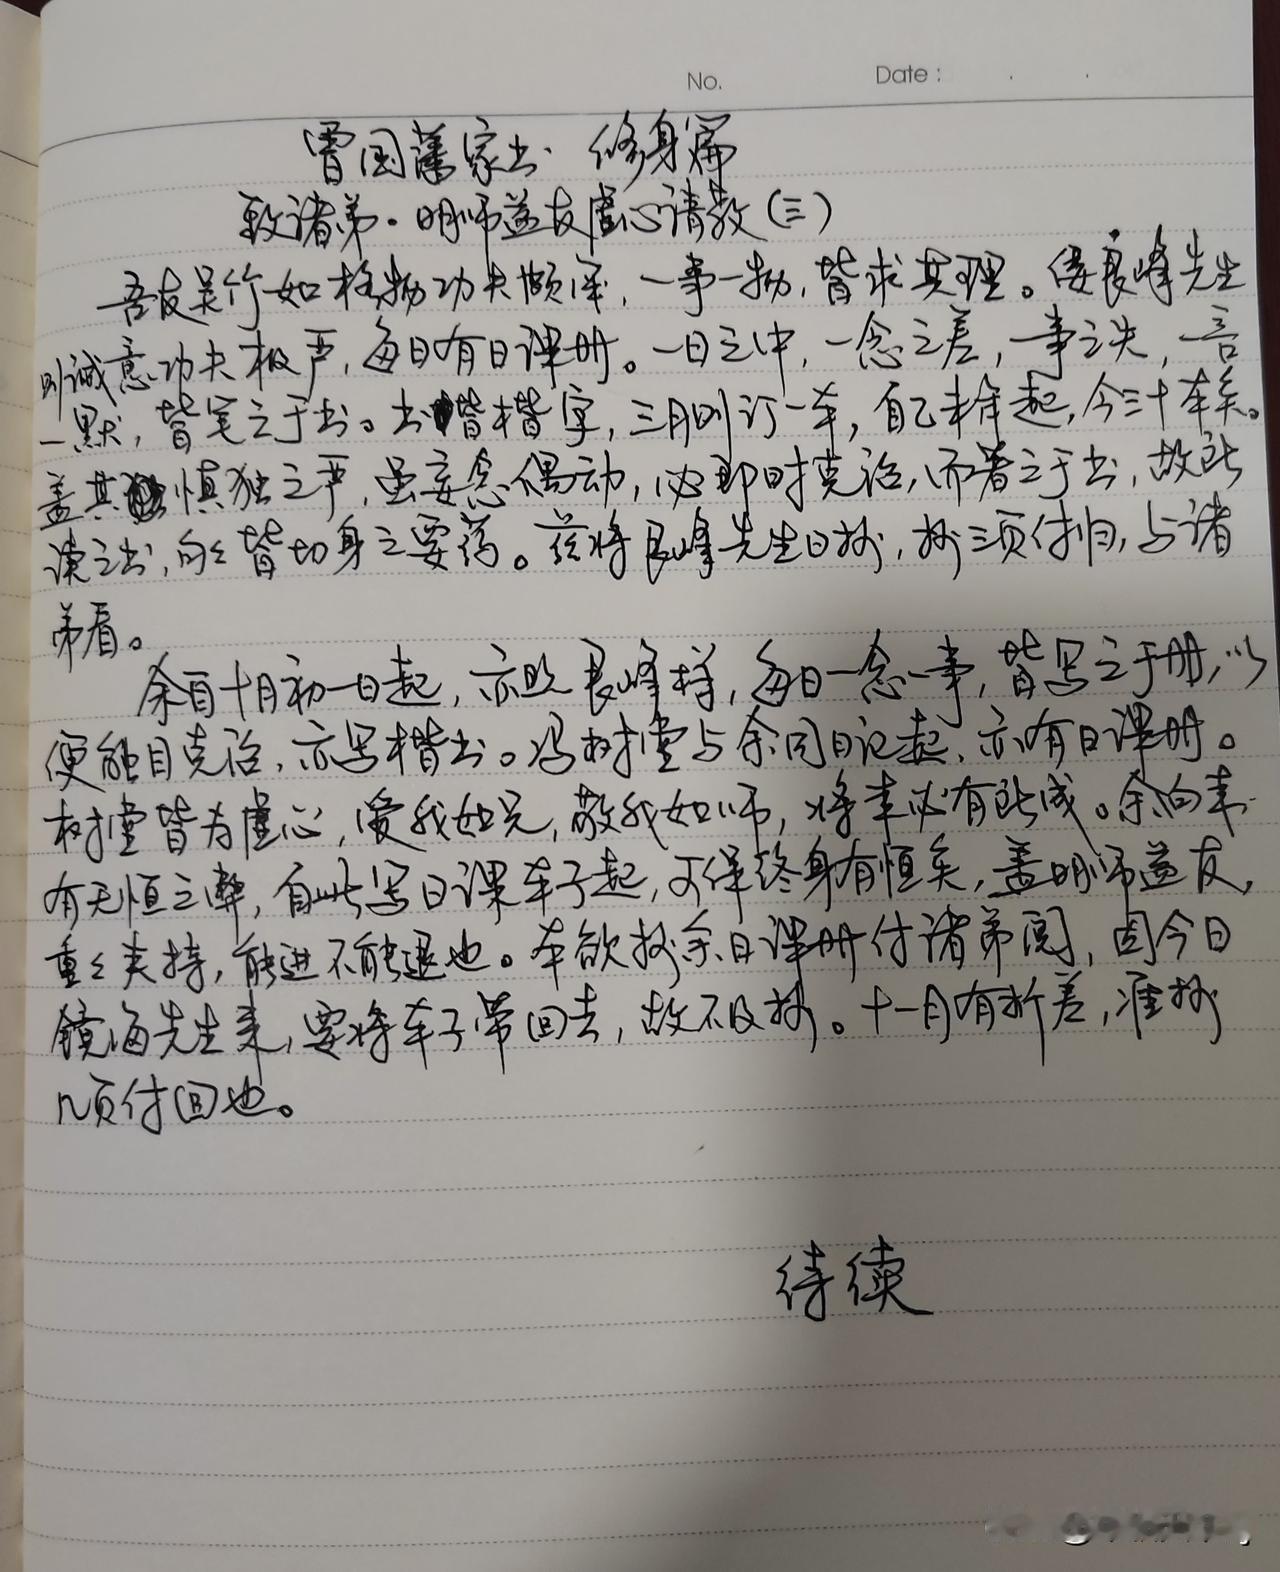 No.
Date :
曾国藩家书·修身篇
致诸弟·明师益友虚心请教(三)
吾友吴竹如格物功夫颇深,一事一物,皆求其理。倭艮峰先生
则诚意功夫极严,每日有日课册。一日之中,一念之差,一事之失,一言
一默,皆笔之于书。书皆楷字,三月则订一本,自乙未年起,今三十本矣。
盖其慎独之严,虽妄念偶动,必即时克治,而著之于书,故所
读之书,句々皆切身之要药。兹将艮峰先生日抄,抄三页付归,与诸
弟看。
余自十月初一日起,亦照艮峰样,每日一念一事,皆写之于册,以
便触目克治,亦写楷书。冯树堂与余同日记起,亦有日课册。
树堂皆为虚心,爱我如兄,敬我如师,将来必有所成。余向来
有无恒之弊,自此写日课本子起,可保终身有恒矣,盖明师益友,
重々夹持,能进不能退也。本欲抄余日课册付诸弟阅,因今日
镜海先生来,要将本子带回去,故不及抄。十一月有折差,准抄
几页付回也。
待续